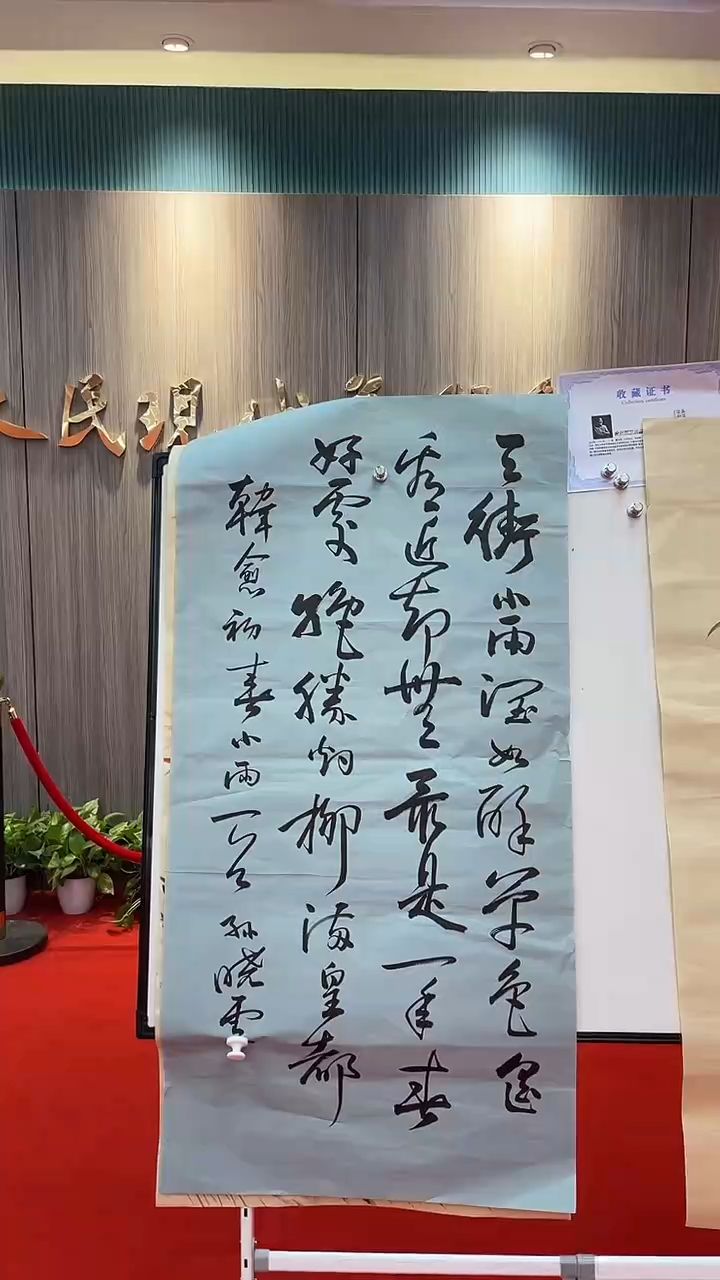 人民
收藏证书
Collection certificate
天街小雨润如酥草色遥
看近却無最是一年春
好處絕勝烟柳满皇都
韓愈初春小雨一首 孙晓雲